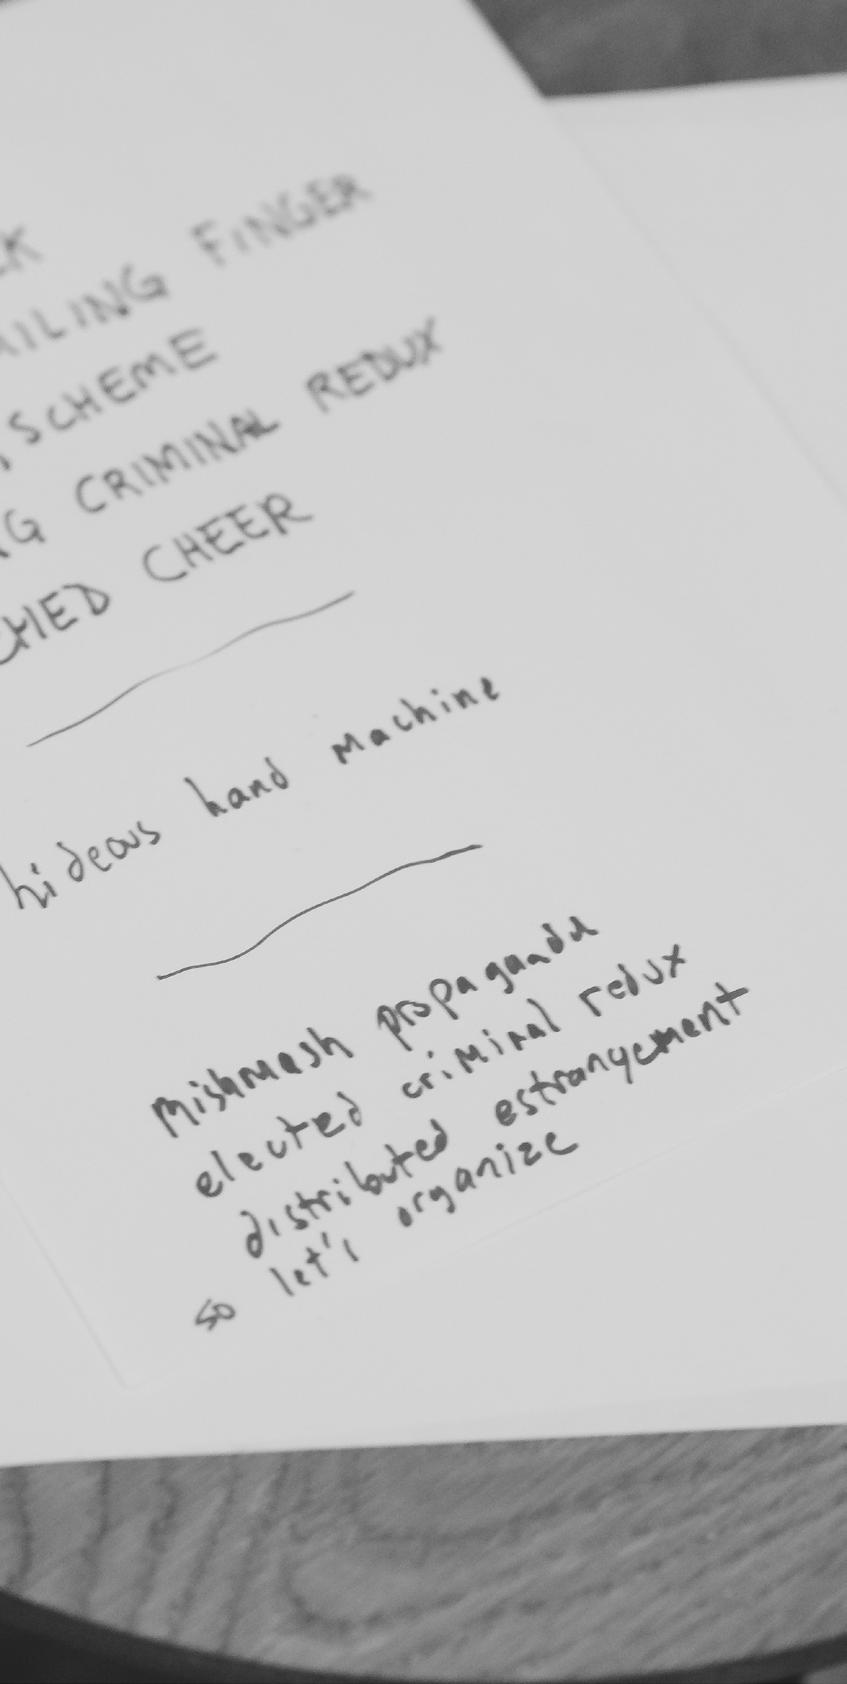 FINGER
SCHEME
CRIMINAL REDUX
CHEER
hideous hand machine
mishmash propaganda
elected criminal redux
distributed estrangement
so let's organize